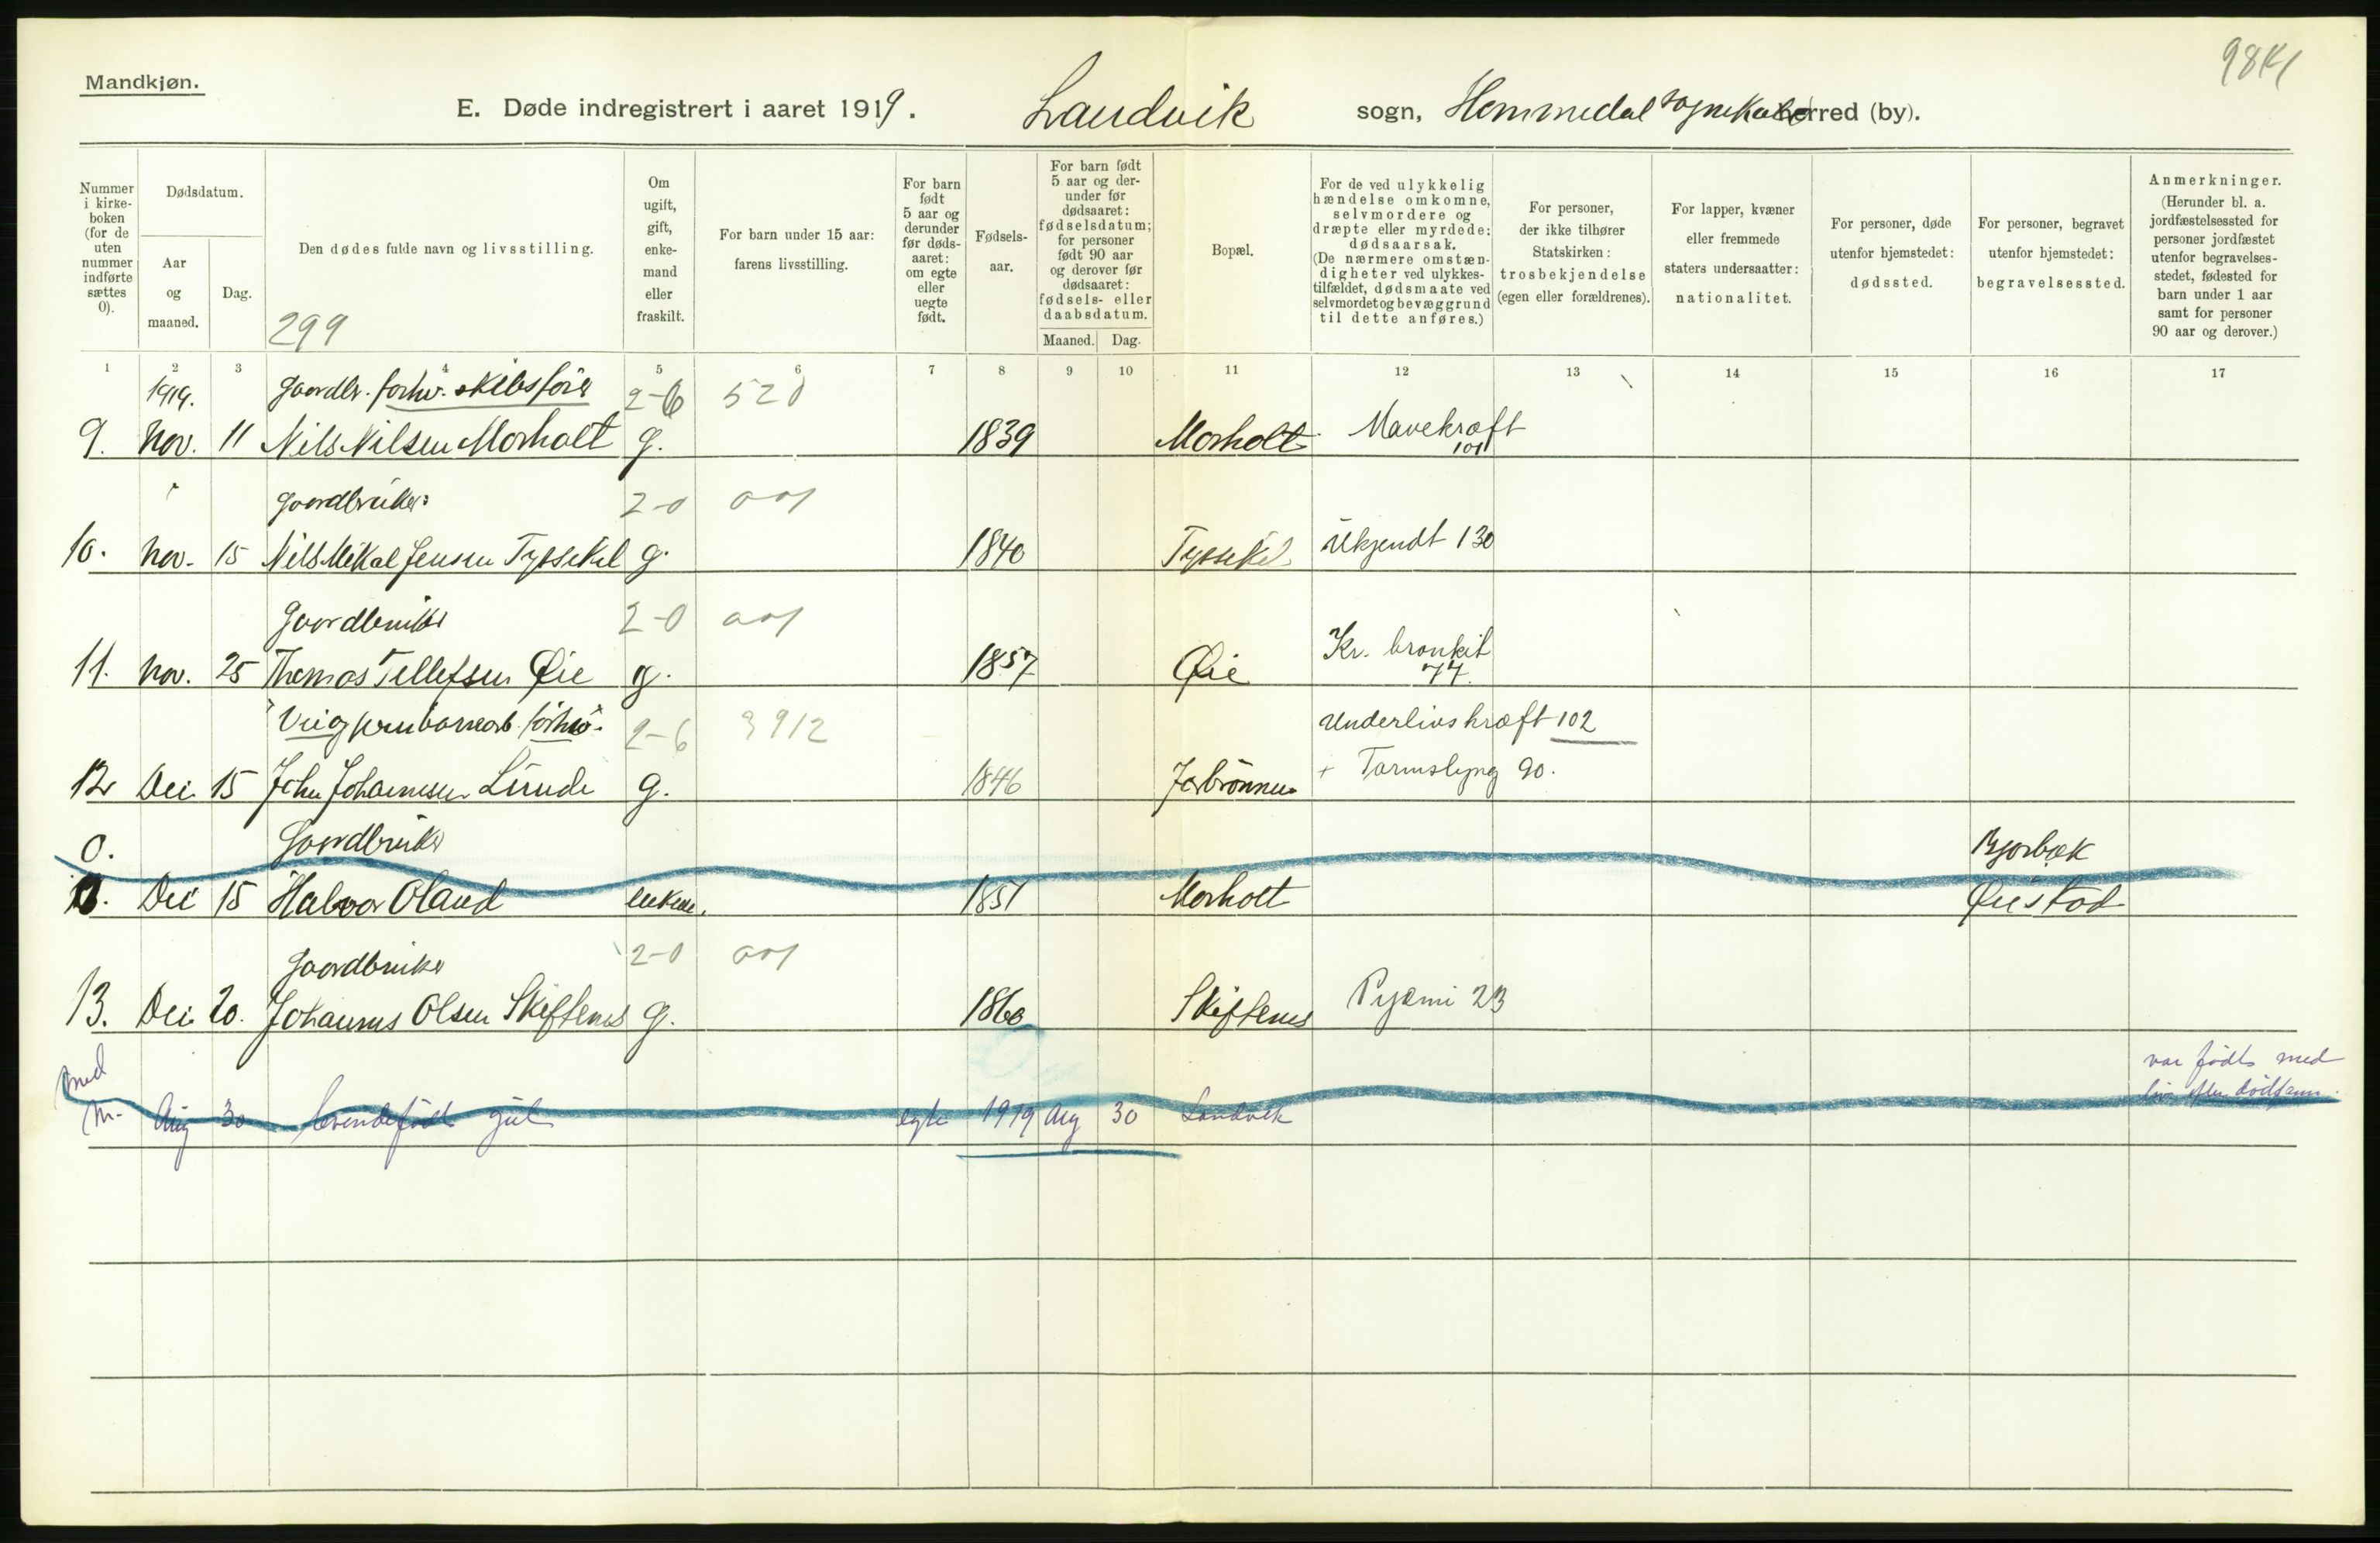 98K1
Mandkjøn.
E. Døde indregistrert i aaret 1919. Landvik sogn, Hommedal sognekald herred (by).
Nummer i kirkeboken (for de uten nummer indførte sættes 0).
Dødsdatum.
Aar og maaned.
Dag.
Den dødes fulde navn og livsstilling.
299
Om ugift, gift, enkemand eller fraskilt.
For barn under 15 aar: farens livsstilling.
For barn født 5 aar og derunder før dødsaaret: om egte eller uegte født.
Fødselsaar.
For barn født 5 aar og derunder før dødsaaret: fødselsdatum; for personer født 90 aar og derover før dødsaaret: fødsels- eller daabsdatum.
Maaned. Dag.
Bopæl.
For de ved ulykkelig hændelse omkomne, selvmordere og dræpte eller myrdede: dødsaarsak. (De nærmere omstændigheter ved ulykkestilfældet, dødsmaate ved selvmordet og bevæggrund til dette anføres.)
For personer, der ikke tilhører Statskirken: trosbekjendelse (egen eller forældrenes).
For lapper, kvæner eller fremmede staters undersaatter: nationalitet.
For personer, døde utenfor hjemstedet: dødssted.
For personer, begravet utenfor hjemstedet: begravelsessted.
Anmerkninger. (Herunder bl. a. jordfæstelsessted for personer jordfæstet utenfor begravelsesstedet, fødested for barn under 1 aar samt for personer 90 aar og derover.)
1 2 3 4 5 6 7 8 9 10 11 12 13 14 15 16 17
1919. Gaardbr. forhv. skibsfører 2-6 520
9. Nov. 11 Nils Nilsen Morholt g. 1839 Morholt Mavekræft 101
" Gaardbruker 2-0 001
10. Nov. 15 Nils Mikal Jensen Tyssekil g. 1840 Tyssekil Ukjendt 130
Gaardbruker 2-0 001
11. Nov. 25 Thomas Tellefsen Øie g. 1857 Øie Kr. bronkit 74.
forhv. 2-6 3912 Underlivskræft 102
12 Dec 15 John Johannesen Lunde g. 1846 + Tarmslyng 90.
0. Gaardbruker Bjorbæk
Dec 15 Halvor Oland enkem. 1851 Morholt Øiestad
Gaardbruker 2-0 001
13. Dec 20. Johannes Olsen Skiftenes g. 1860 Skiftenes Pyæmi 23
med var født med
m. Aug 30 levendefødt gut egte 1919 Aug 30 Landvik liv efter dødfanm.